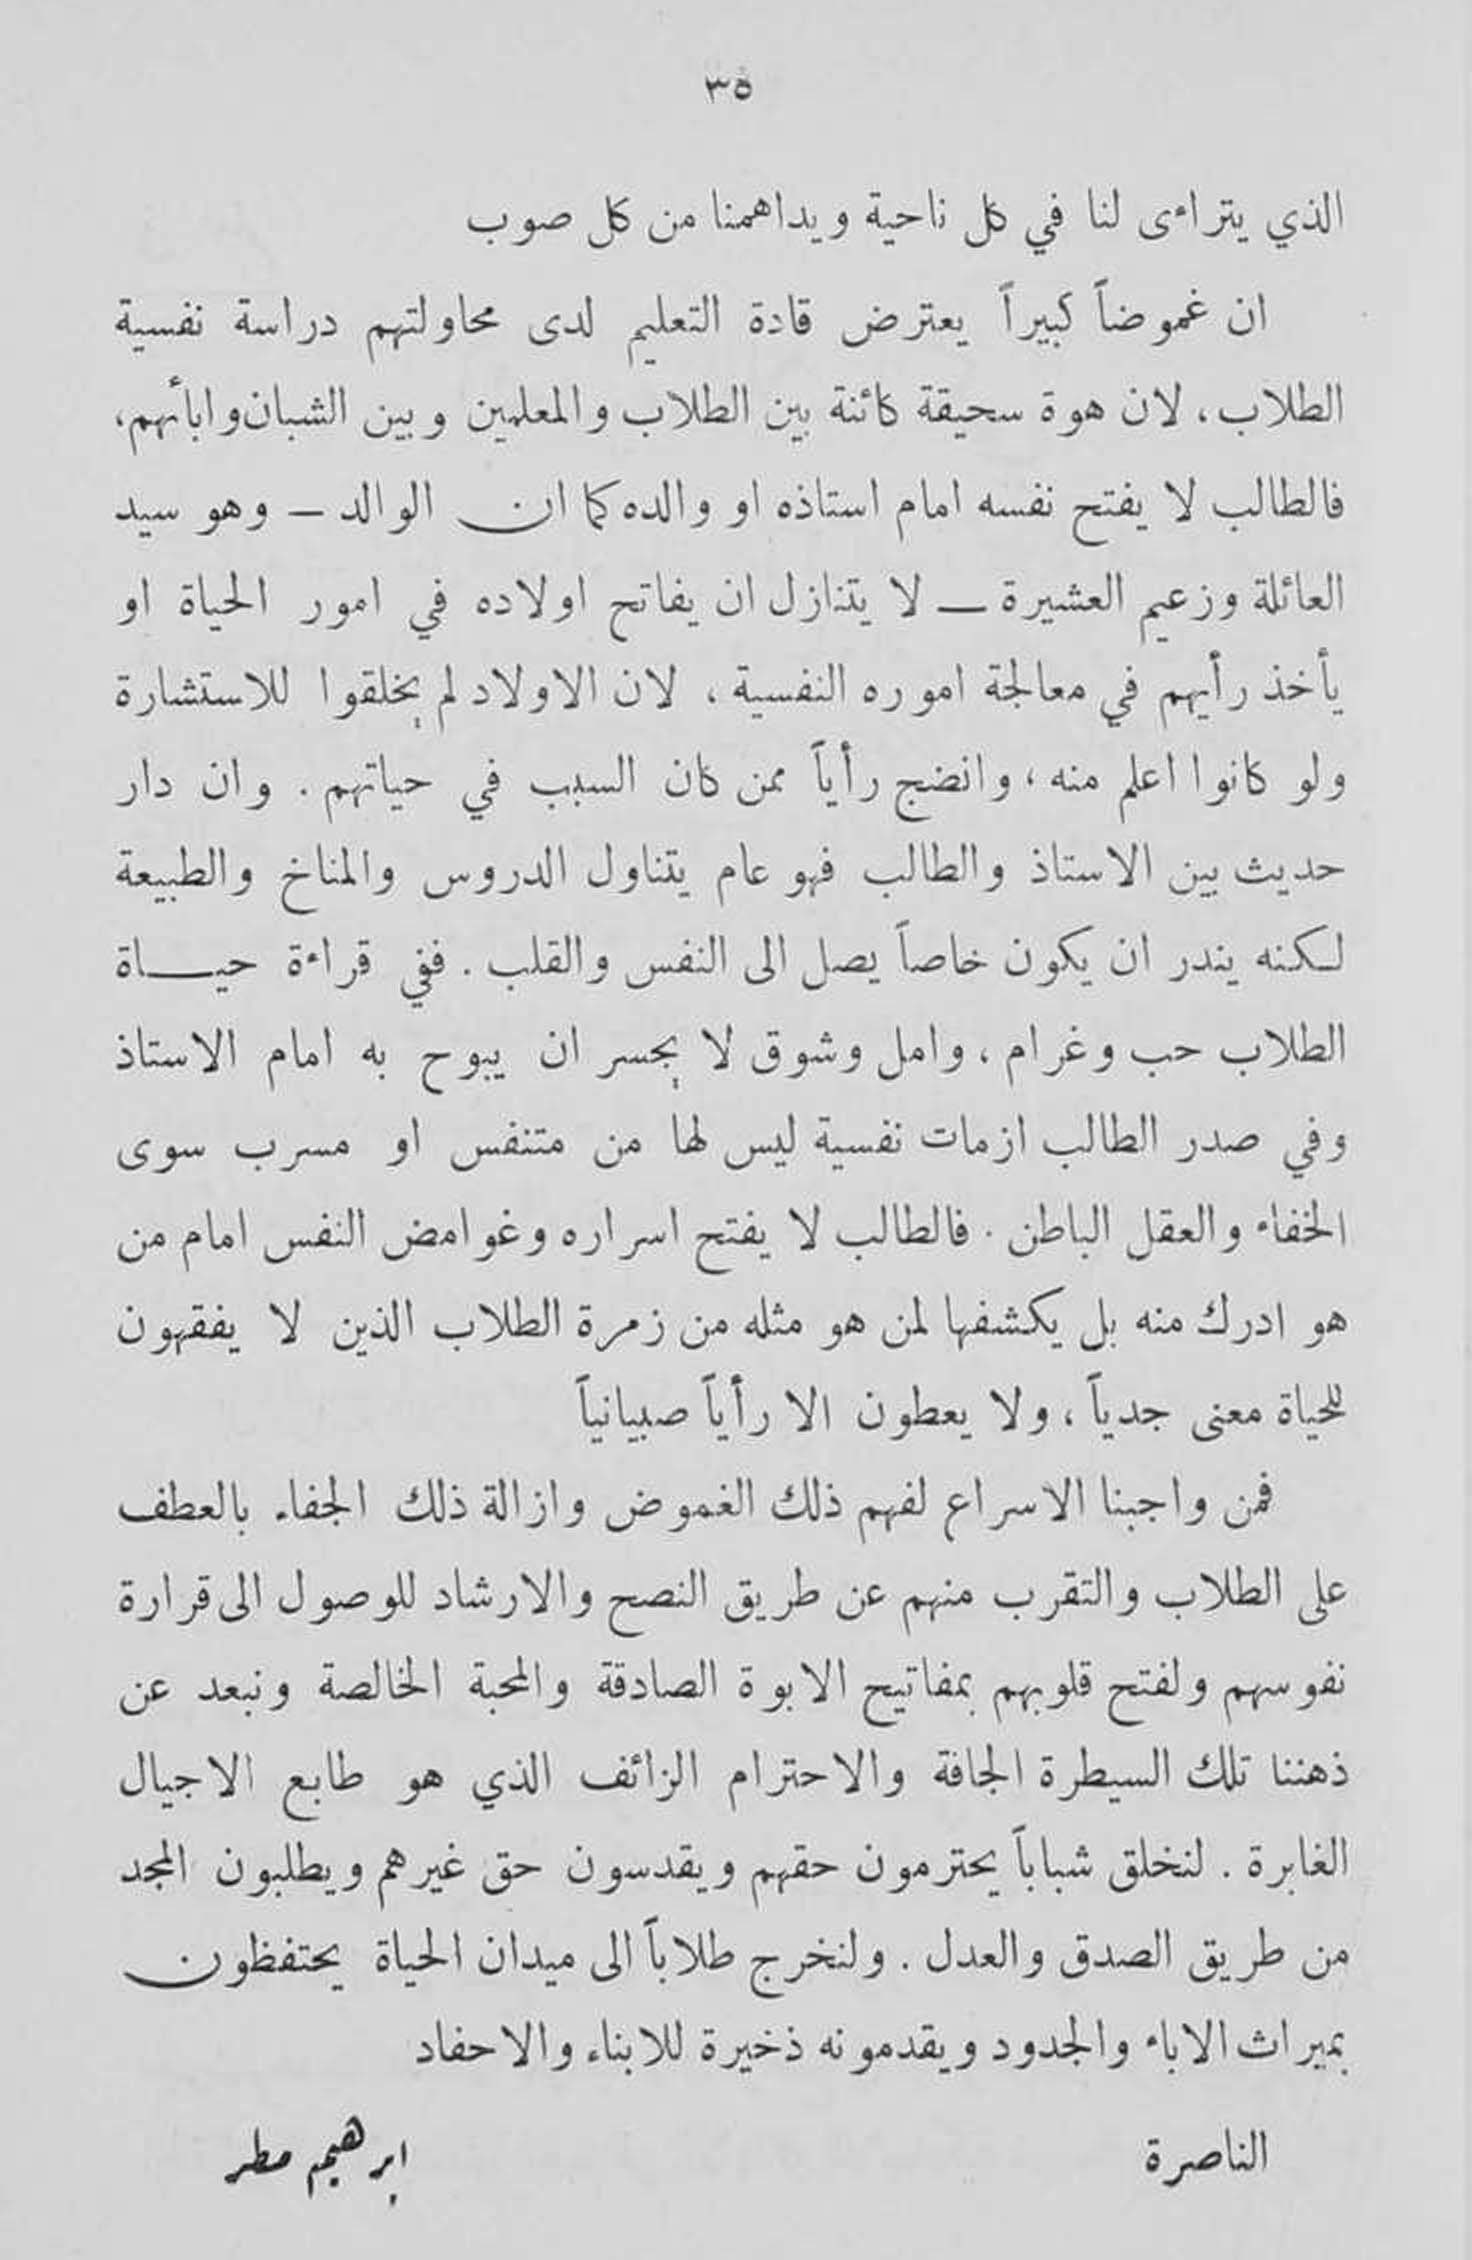 ٣٥
الذي يتراءى لنا في كل ناحية ويداهمنا من كل صوب
ان غموضاً كبيراً يعترض قادة التعليم لدى محاولتهم دراسة نفسية
الطلاب، لان هوة سحيقة كائنة بين الطلاب والمعلمين وبين الشبان وابأهم،
فالطالب لا يفتح نفسه امام استاذه او والده كما ان الوالد ــ وهو سيد
العائلة وزعيم العشيرة ــ لا يتنازل ان يفاتح اولاده في امور الحياة او
يأخذ رأيهم في معالجة اموره النفسية، لان الاولاد لم يخلقوا للاستشارة
ولو كانوا اعلم منه، وانضج رأياً ممن كان السبب في حياتهم. وان دار
حديث بين الاستاذ والطالب فهو عام يتناول الدروس والمناخ والطبيعة
لكنه يندر ان يكون خاصاً يصل الى النفس والقلب. ففي قراءة حيـــاة
الطلاب حب وغرام، وامل وشوق لا يجسر ان يبوح به امام الاستاذ
وفي صدر الطالب ازمات نفسية ليس لها من متنفس او مسرب سوى
الخفاء والعقل الباطن. فالطالب لا يفتح اسراره وغوامض النفس امام من
هو ادرك منه بل يكشفها لمن هو مثله من زمرة الطلاب الذين لا يفقهون
للحياة معنى جدياً، ولا يعطون الا رأياً صبيانياً
فمن واجبنا الاسراع لفهم ذلك الغموض وازالة ذلك الجفاء بالعطف
على الطلاب والتقرب منهم عن طريق النصح والارشاد للوصول الى قرارة
نفوسهم ولفتح قلوبهم بمفاتيح الابوة الصادقة والمحبة الخالصة ونبعد عن
ذهننا تلك السيطرة الجافة والاحترام الزائف الذي هو طابع الاجيال
الغابرة. لنخلق شباباً يحترمون حقهم ويقدسون حق غيرهم ويطلبون المجد
من طريق الصدق والعدل. ولنخرج طلاباً الى ميدان الحياة يحتفظون
بميراث الاباء والجدود ويقدمونه ذخيرة للابناء والاحفاد
الناصرة ابرهيم مطر